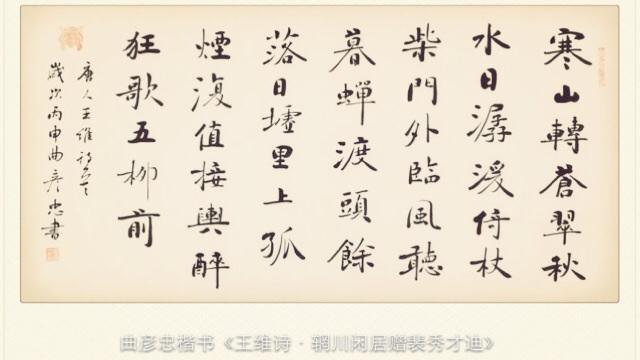 寒山轉蒼翠秋
水日潺湲倚杖
柴門外臨風聽
暮蟬渡頭餘
落日墟里上孤
煙復值接輿醉
狂歌五柳前
唐人王維詩
歲次丙申曲彥忠書
曲彦忠楷书《王维诗·辋川闲居赠裴秀才迪》